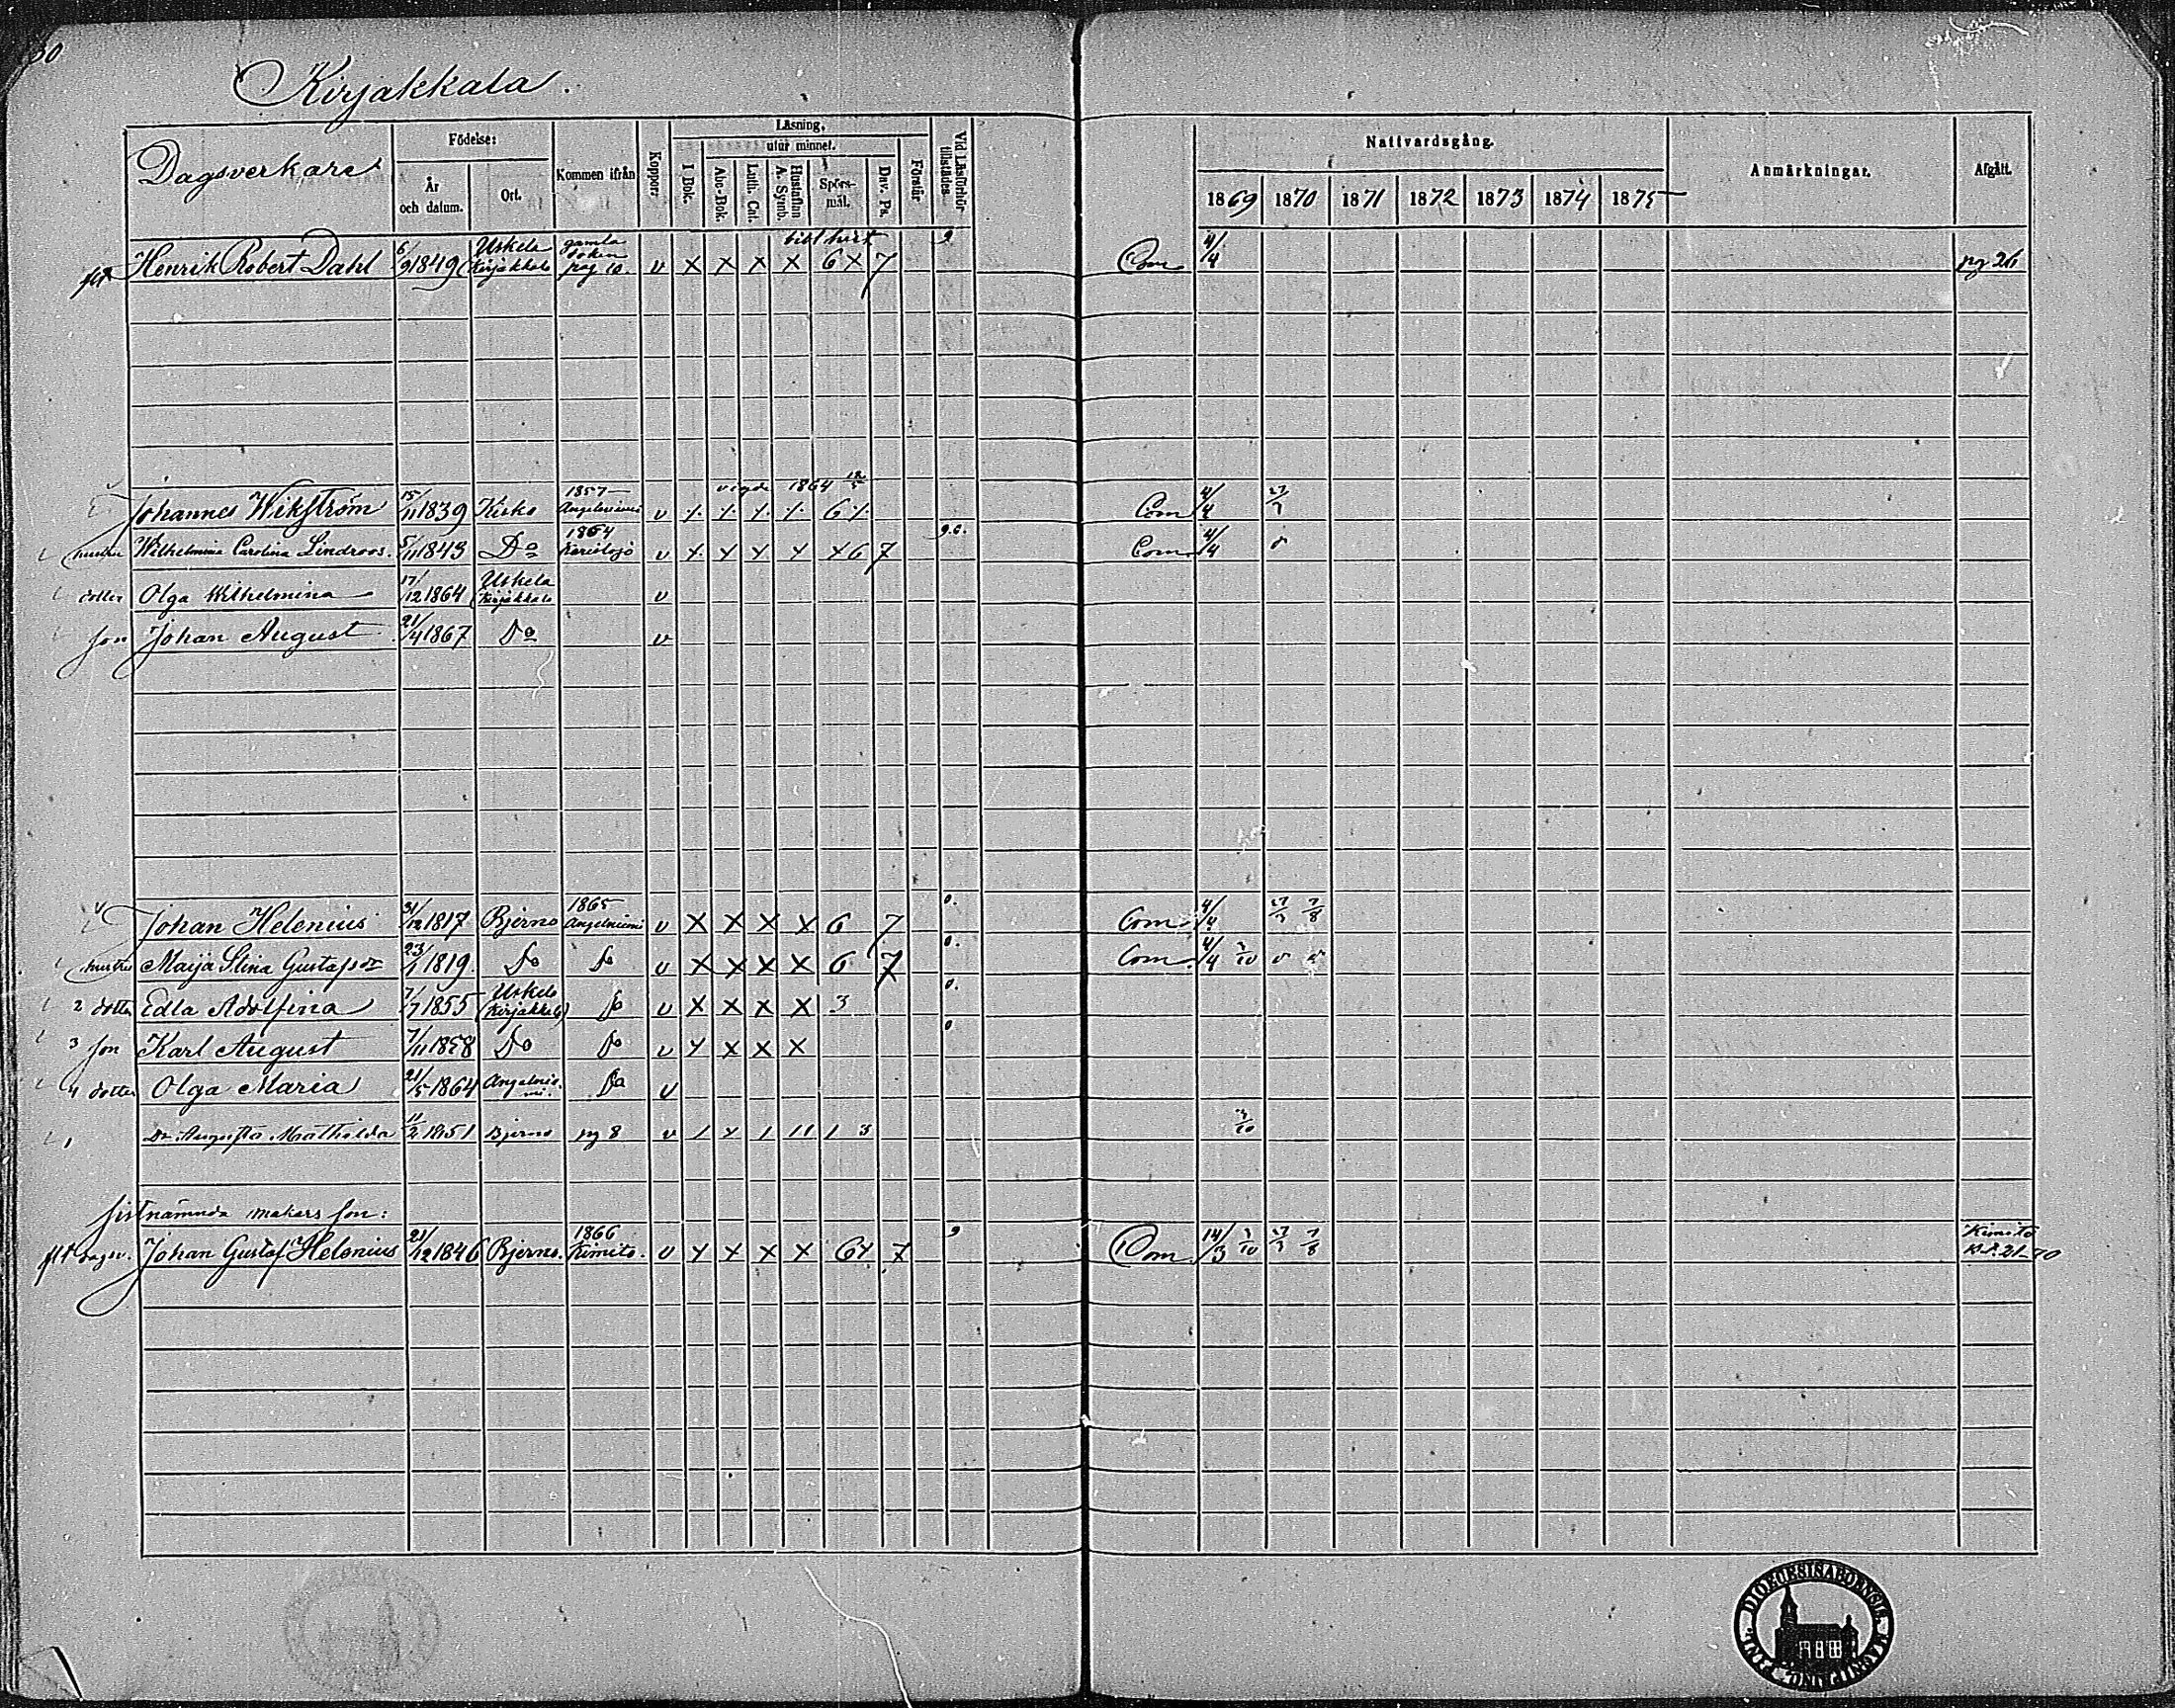 30
Kirjakkala.
Dagsverkare
Födelse:
År och datum.
Ort.
Kommen ifrån
Koppor:
Läsning,
I Bok.
utur minnet.
Abc-Bok.
Luth. Cat.
Hustaflan A. Symb.
Spörs-mål.
Dav. Ps.
Förstår
Vid Läsförhör tillstädes
Nattvardsgång.
1869 1870 1871 1872 1873 1874 1875
Anmärkningar.
Afgått.
Henrik Robert Dahl 6/9 1849 Uskela (Kirjakkala gamla boken pag 10 v x x x x 6 x 7 9 Com 4/4 pg 26
vigde 1864 12/5
Johannes Wikström 15/11 1839 Kisko 1857 Angelniemi v 6 Com 4/4 27/7
hustru Wilhelmina Carolina Lindroos. 5/11 1843 Do 1864 Karislojo v x x x x x 6 7 9.0. Com. 4/4
dotter Olga Wilhelmina 17/12 1864 Uskela (Kirjakkala v
son Johan August 21/4 1867 Do v
Johan Helenius 31/12 1817 Bjerno 1865 Angelniemi v x x x x 6 7 0. Com. 4/4 27/7 7/8
hustru Maija Stina Gustafsdr 23/1 1819. Do Do v x x x x 6 7 0. Com. 4/4 3/10
2 dotter Edla Adolfina 7/7 1855 Uskela (Kirjakkala) Do v x x x x 3 0.
3 son Karl August 7/11 1858 Do Do v x x x x 0
4 dotter Olga Maria 21/5 1864 Angelnie-mi. Do v
1 Dr. Augusta Mathilda 11/2 1851 Bjerno pg 8 v 3 3/10
sistnämnda makars son:
Johan Gustaf Helenius 21/12 1846 Bjerno. 1866 Kimito. v x x x x 6x 7 9 Com. 14/3 3/10 27/7 7/8 Kimito
DIOECESIS ABOENSIS